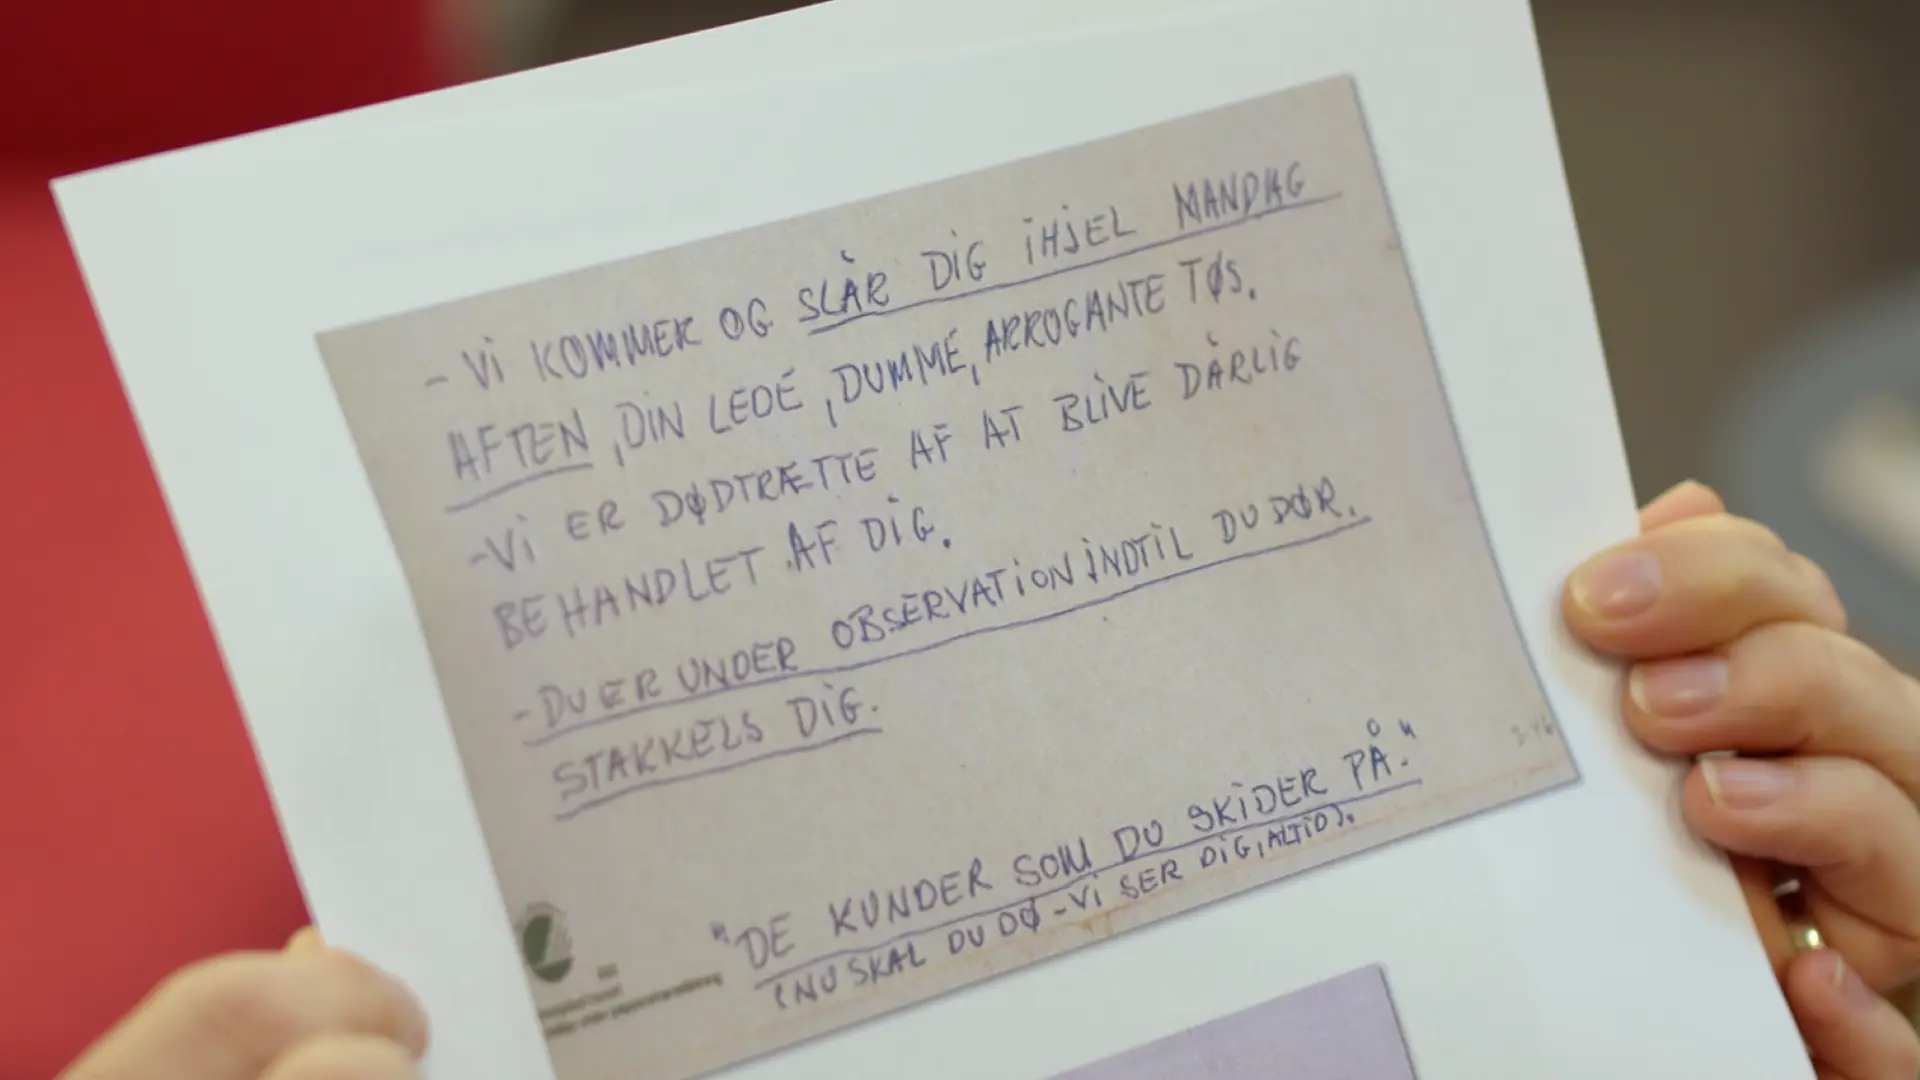 - Vi KOMMER OG SLÅR DiG iHJEL MANDAG
AFTEN, DIN LEDE, DUMME, ARROGANTE TØS.
- Vi ER DØDTRÆTTE AF AT BLiVE DÅRLiG
BEHANDLET AF DiG.
- DU ER UNDER OBSERVATiON iNDTiL DU DØR.
STAKKELS DiG.
"DE KUNDER SOM DU SKiDER PÅ."
(NU SKAL DU DØ - Vi SER DiG, ALTiD).